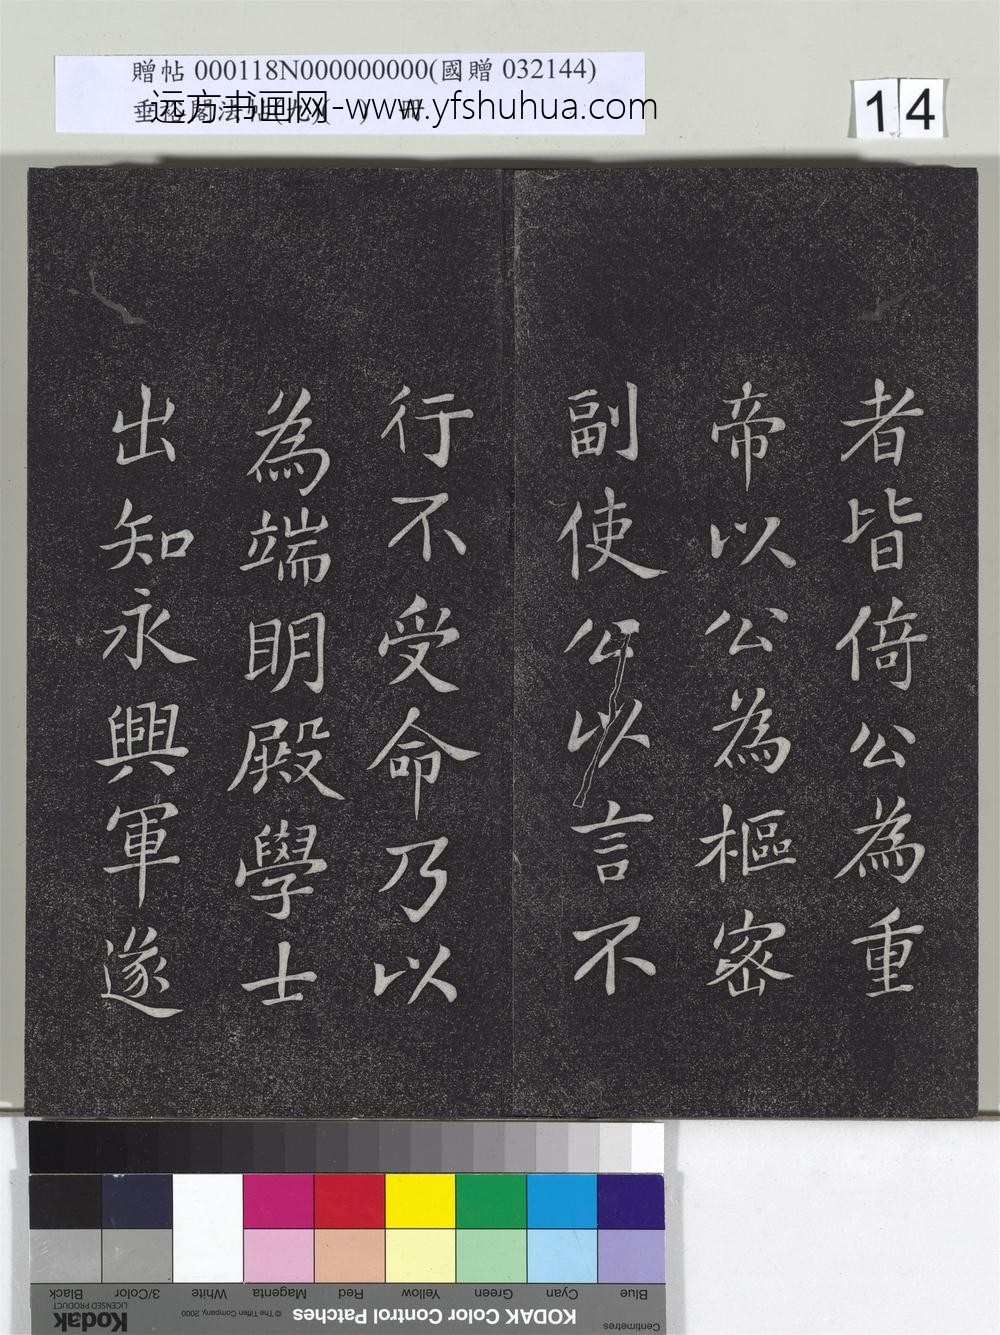 贈帖 000118N000000000(國贈 032144)
远方书画网-www.yfshuhua.com
14
者皆倚公為重
帝以公為樞密
副使公以言不
行不受命乃以
為端明殿學士
出知永興軍遂
Blue Cyan Green Yellow Red Magenta White 3/Color Black
Centimetres
KODAK Color Control Patches
© The Tiffen Company, 2000
Kodak
LICENSED PRODUCT